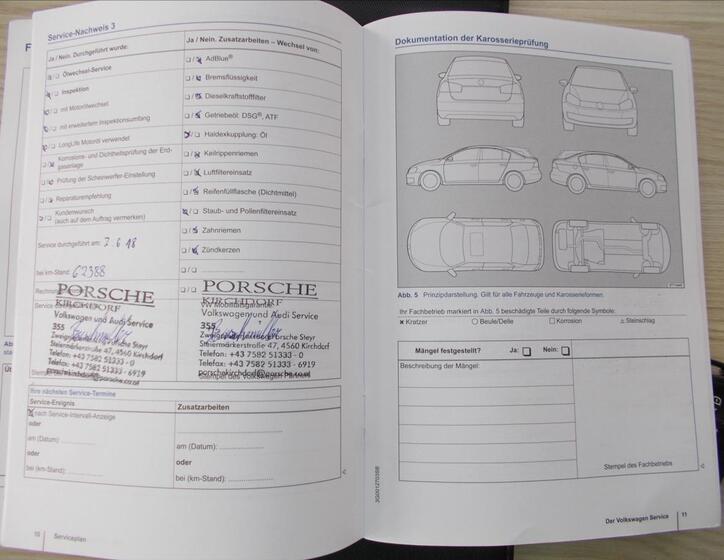 Service-Nachweis 3
Ja / Nein. Durchgeführt wurde:
Ölwechsel-Service
Inspektion
mit Motorölwechsel
mit erweitertem Inspektionsumfang
LongLife Motoröl verwendet
Korrosions- und Dichtheitsprüfung der Erdgasanlage
Prüfung der Scheinwerfer-Einstellung
Reparaturempfehlung
Kundenwunsch
(auch auf dem Auftrag vermerken)
Service durchgeführt am: 7.6.18
bei km-Stand: 62388
Ja / Nein. Zusatzarbeiten – Wechsel von:
AdBlue®
Bremsflüssigkeit
Dieselkraftstofffilter
Getriebeöl: DSG®, ATF
Haldexkupplung: Öl
Keilrippenriemen
Luftfiltereinsatz
Reifenfüllflasche (Dichtmittel)
Staub- und Pollenfiltereinsatz
Zahnriemen
Zündkerzen
PORSCHE
KIRCHDORF
Volkswagen und Audi Service
355
Zweigniederlassung der Porsche Steyr
Steiermärkerstraße 47, 4560 Kirchdorf
Telefon: +43 7582 51333 - 0
Telefax: +43 7582 51333 - 6919
porschekirchdorf@porsche.co.at
PORSCHE
KIRCHDORF
Volkswagen und Audi Service
355
Steiermärkerstraße 47, 4560 Kirchdorf
Telefon: +43 7582 51333 - 0
Telefax: +43 7582 51333 - 6919
porschekirchdorf@porsche.co.at
Ihre nächsten Service-Termine
Service-Ereignis
Zusatzarbeiten
nach Service-Intervall-Anzeige
oder
am (Datum):
oder
bei (km-Stand):
am (Datum):
oder
bei (km-Stand):
10
Serviceplan
Dokumentation der Karosserieprüfung
Abb. 5 Prinzipdarstellung. Gilt für alle Fahrzeuge und Karosserieformen.
Ihr Fachbetrieb markiert in Abb. 5 beschädigte Teile durch folgende Symbole:
× Kratzer ○ Beule/Delle □ Korrosion △ Steinschlag
Mängel festgestellt? Ja: Nein:
Beschreibung der Mängel:
Stempel des Fachbetriebs
Der Volkswagen Service
11